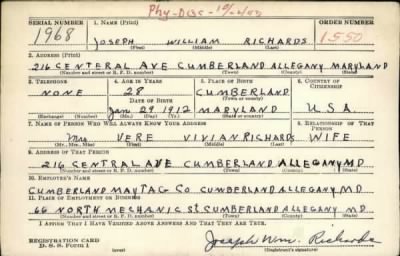 Phy-Disc-10/2/42
SERIAL NUMBER 1. NAME (Print) ORDER NUMBER
1968 JOSEPH WILLIAM RICHARDS 1550
(First) (Middle) (Last)
2. ADDRESS (Print)
216 CENTERAL AVE CUMBERLAND ALLEGANY MARYLAND
(Number and street or R. F. D. number) (Town) (County) (State)
3. TELEPHONE 4. AGE IN YEARS 5. PLACE OF BIRTH 6. COUNTRY OF CITIZENSHIP
NONE 28 CUMBERLAND
DATE OF BIRTH (Town or county)
Jan 29 1912 MARYLAND U.S.A.
(Mo.) (Day) (Yr.) (State or country)
7. NAME OF PERSON WHO WILL ALWAYS KNOW YOUR ADDRESS 8. RELATIONSHIP OF THAT PERSON
Mrs VERE VIVIAN RICHARDS WIFE
(Mr., Mrs., Miss) (First) (Middle) (Last)
9. ADDRESS OF THAT PERSON
216 CENTRAL AVE CUMBERLAND ALLEGANY MD
(Number and street or R. F. D. number) (Town) (County) (State)
10. EMPLOYER'S NAME
CUMBERLAND MAYTAG CO CUMBERLAND ALLEGANY MD
11. PLACE OF EMPLOYMENT OR BUSINESS
66 NORTH MECHANIC ST CUMBERLAND ALLEGANY MD
(Number and street or R. F. D. number) (Town) (County) (State)
I AFFIRM THAT I HAVE VERIFIED ABOVE ANSWERS AND THAT THEY ARE TRUE.
REGISTRATION CARD
D. S. S. Form 1 Joseph Wm. Richards
(Registrant's signature)